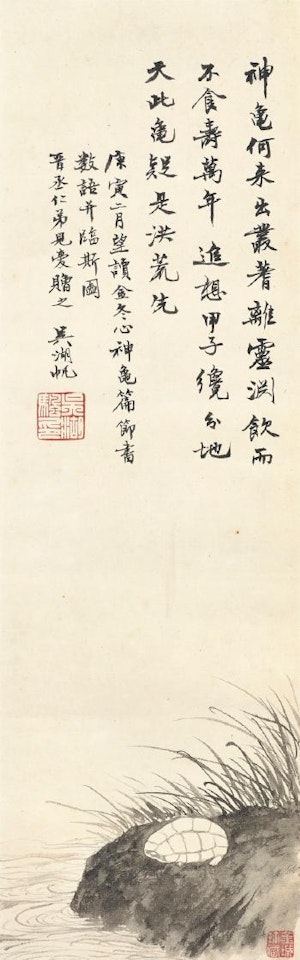 神龜何来出叢蓍離靈渊飲而
不食壽萬年進想甲子纔分地
天此龜疑是洪荒先
庚寅二月望讀金冬心神龜篇節書
數語并臨斯圖
晋丞仁弟見愛贈之 吴湖帆